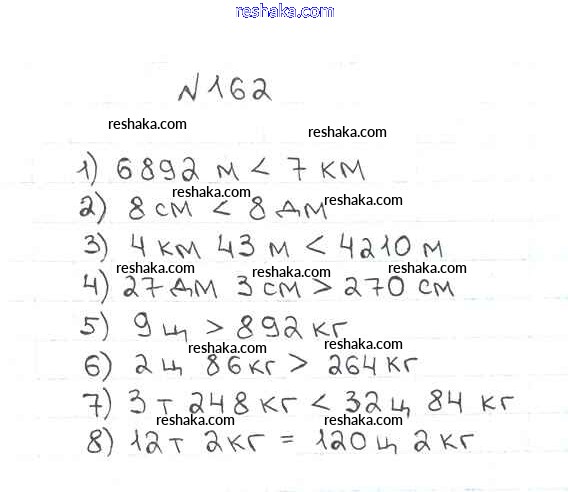 reshaka.com
№162
reshaka.com
reshaka.com
1) 6892 м < 7 км
reshaka.com
reshaka.com
2) 8 см < 8 дм
3) 4 км 43 м < 4210 м
reshaka.com
reshaka.com
reshaka.com
4) 27 дм 3 см > 270 см
5) 9 ц > 892 кг
reshaka.com
reshaka.com
6) 2 ц 86 кг > 264 кг
7) 3 т 248 кг < 32 ц 84 кг
reshaka.com
reshaka.com
8) 12 т 2 кг = 120 ц 2 кг